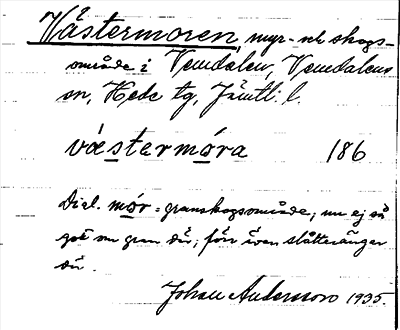 Västermoren, myr- och skogs-
område i Vemdalen, Vemdalens
sn, Hede tg, Jämtl. l.
væstermóra 186
Dial. mór = granskogsområde; nu ej så
gott om gran där; förr även slåtteränger
där.
Johan Andersson 1935.